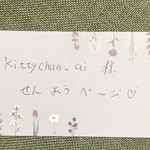 Kittychan_ai 様
せんようページ♡